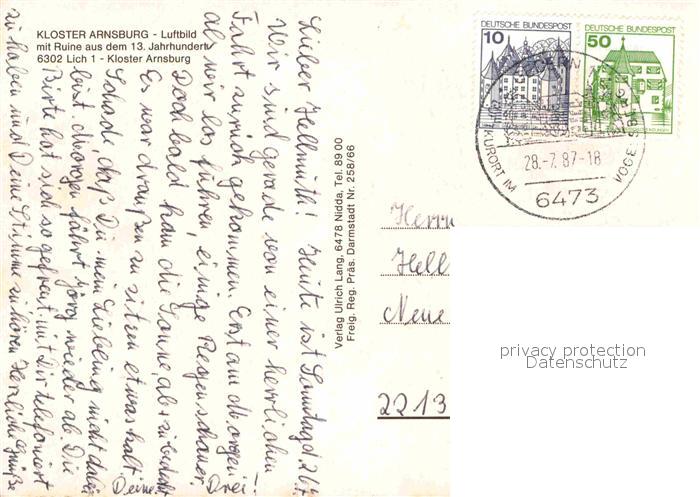 KLOSTER ARNSBURG - Luftbild
mit Ruine aus dem 13. Jahrhundert
6302 Lich 1 - Kloster Arnsburg
Lieber Hellmuth! Heute ist Sonntag d. 26.7.
Wir sind gerade von einer herrlichen
Fahrt zurück gekommen. Erst am Morgen
als wir los fuhren, einige Regenschauer.
Doch bald kam die Sonne, aber zu bedeckt
Es war draußen zu sitzen etwas kalt.
Schade daß Du mein Liebling nicht dabei
bist. Morgen fährt Jörg wieder ab. Die
Birte hat sich so gefreut mit Dir telefoniert
zu haben und Deine Stimme zu hören. Herzliche Grüße
Deine Drei!
Verlag Ulrich Lang, 6478 Nidda, Tel. 8900
Freig. Reg. Präs. Darmstadt Nr. 258/66
10 DEUTSCHE BUNDESPOST
50 DEUTSCHE BUNDESPOST
KURORT IM VOGELSBERG
28.-7.87-18
6473
Herrn
Hell
Neue
2213
privacy protection
Datenschutz